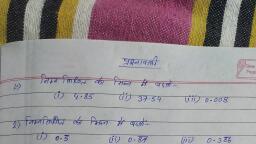 प्रश्नावली
1) निम्नलिखित को भिन्न में बदलो-
(i) 4.85 (ii) 37.54 (iii) 0.008
2) निम्नलिखित को भिन्न में बदलो-
(i) 0.5 (ii) 0.57 (iii) 0.356